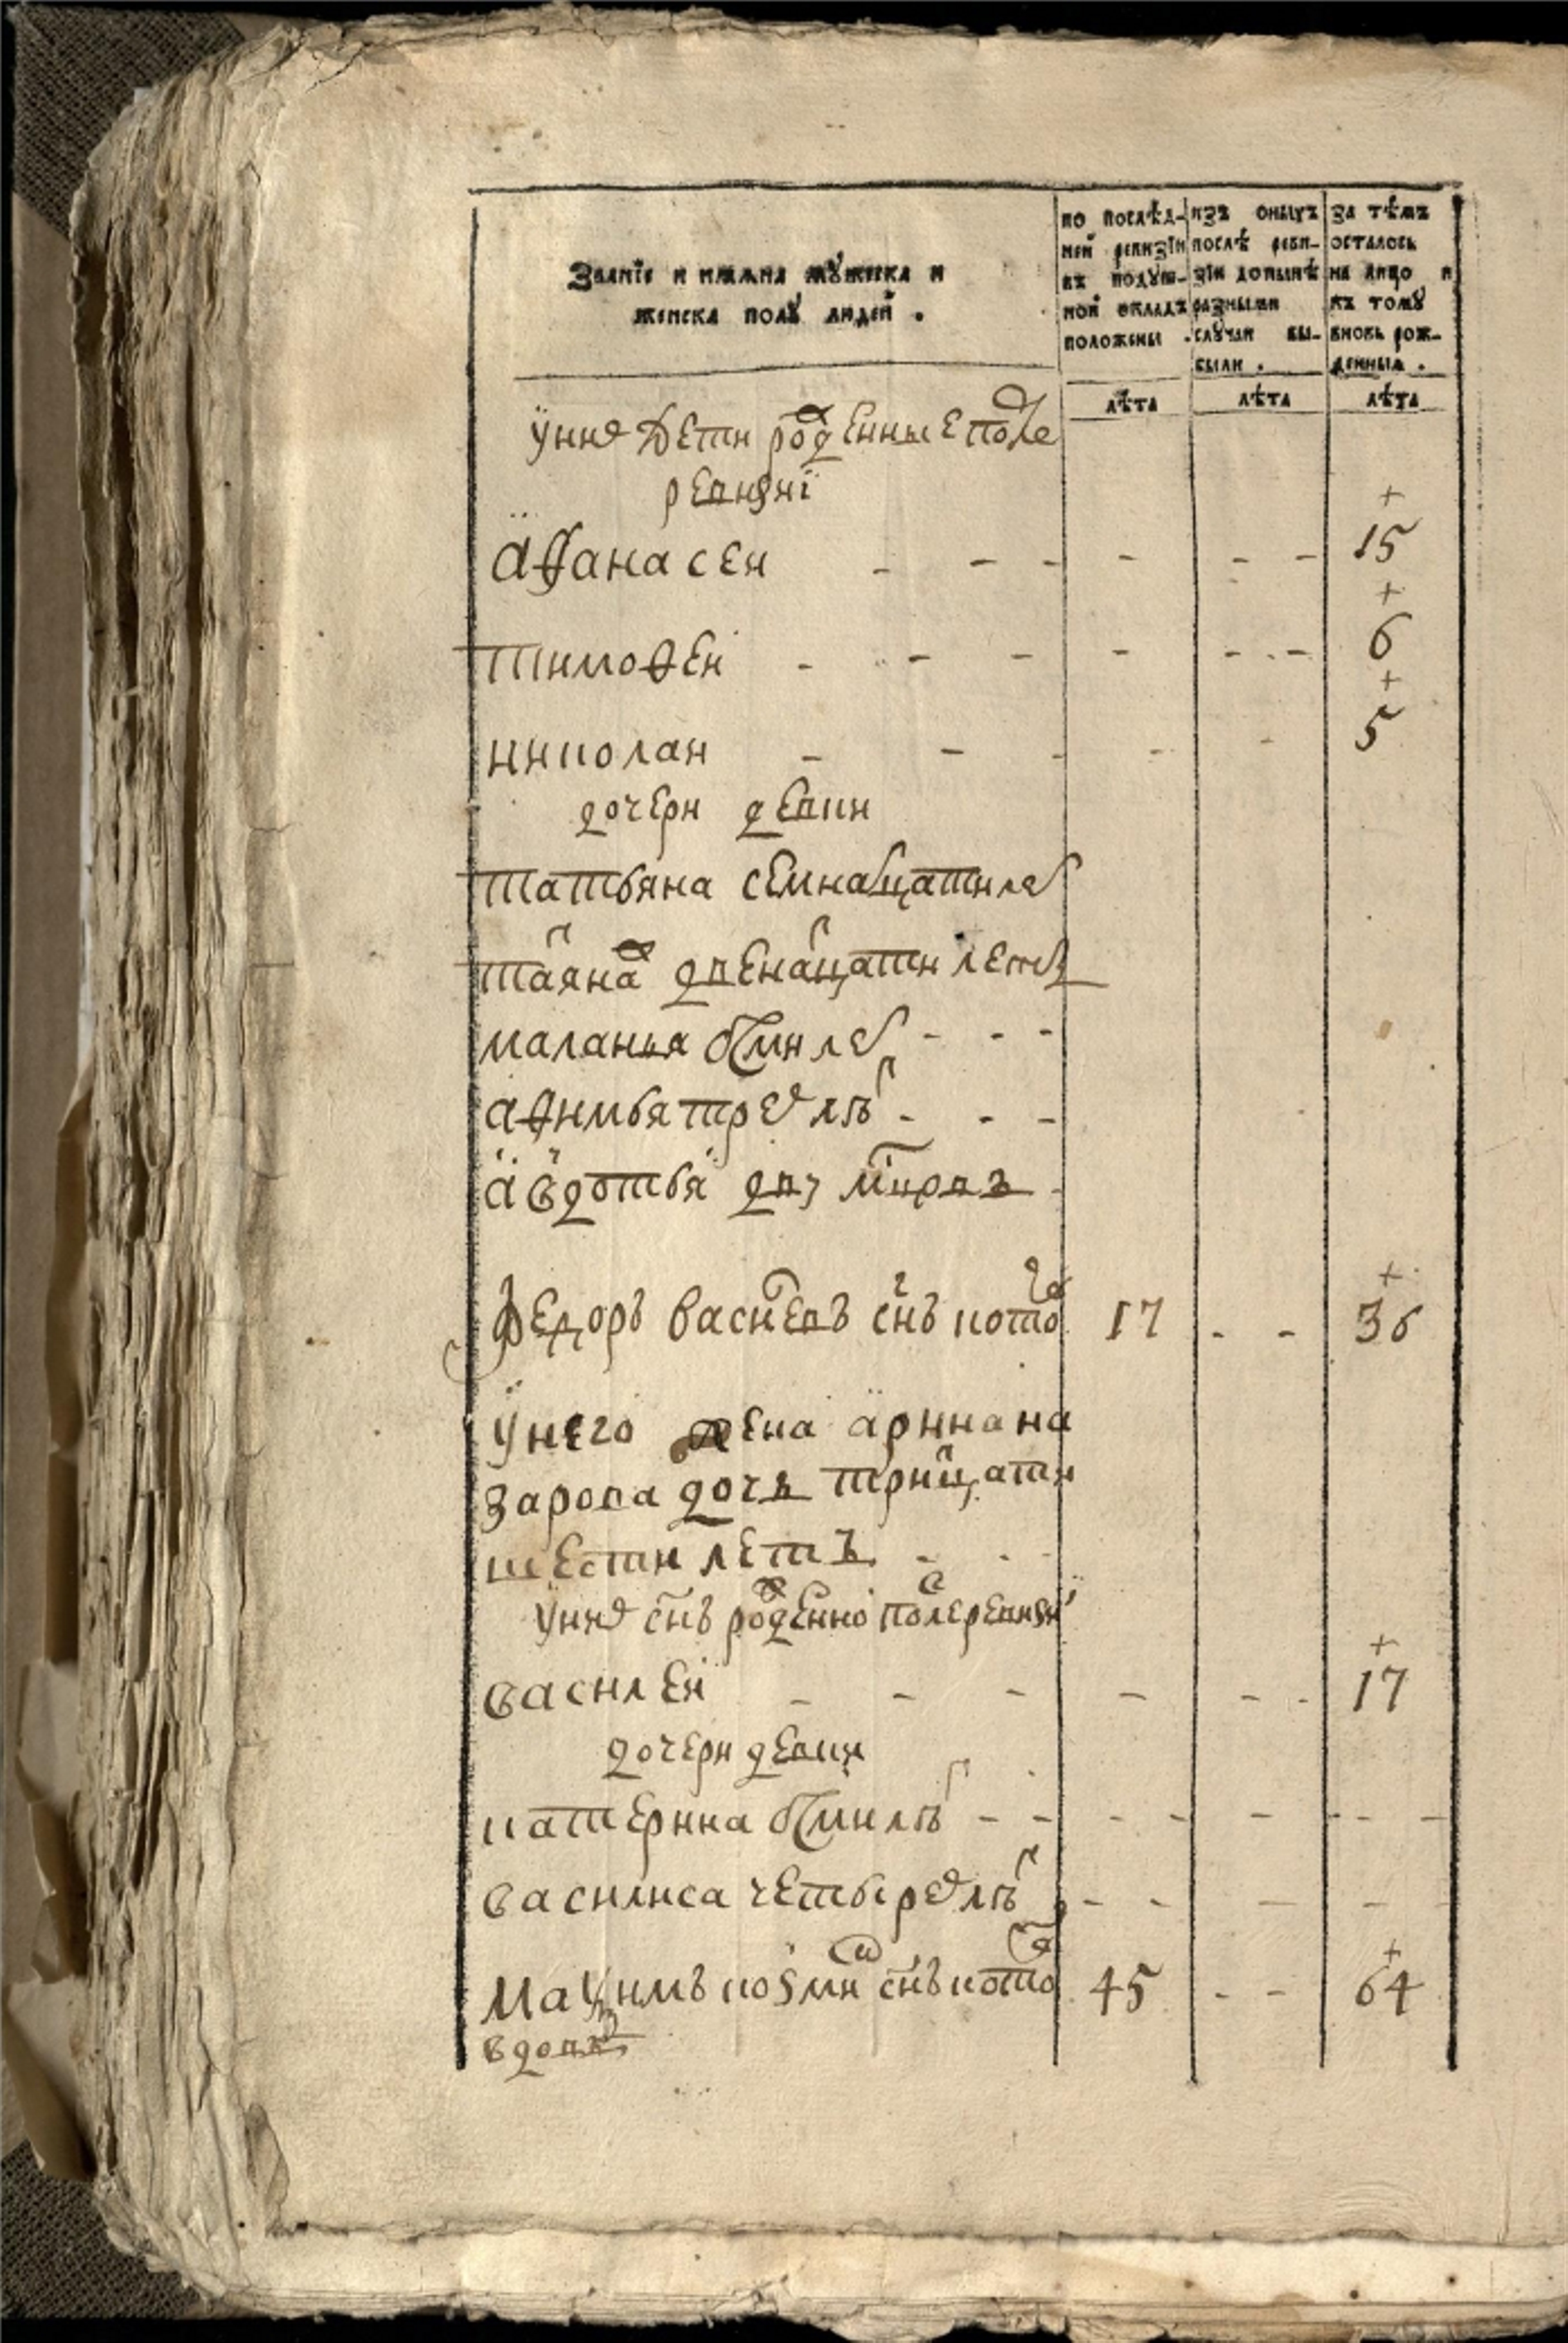 Званїе и имѧна мꙋжеска и
женска полꙋ людей .
по послѣд-
ней ревизїи
въ подꙋш-
ной окладъ
положены .
изъ оныхъ
послѣ реви-
зїи донынѣ
разными
слꙋчаи вы-
были .
за тѣмъ
осталось
на лицо и
къ томꙋ
вновь рож-
денныѧ .
лѣта лѣта лѣта
у них дети рожденные после
ревизиї
афанасеи - - - - - - 15
тимофеи - - - - - - 6
николаи - - - - - 5
дочери девки
татьяна семнатцати лет
двенатцати летъ
маланья осми лет - - -
афимья трех летъ - - -
авдотья дву -
федоръ васильевъ снъ 17 - - 36
у него жена арина на
зарова дочь тритцати
шести летъ - -
у них снъ рожденной после ревизиї
василеи - - - - - - 17
дочери девки
катерина осми летъ - - - - - - -
василиса четырех летъ - - - -
Маѯимъ козмин снъ 45 - - 64
вдовъ